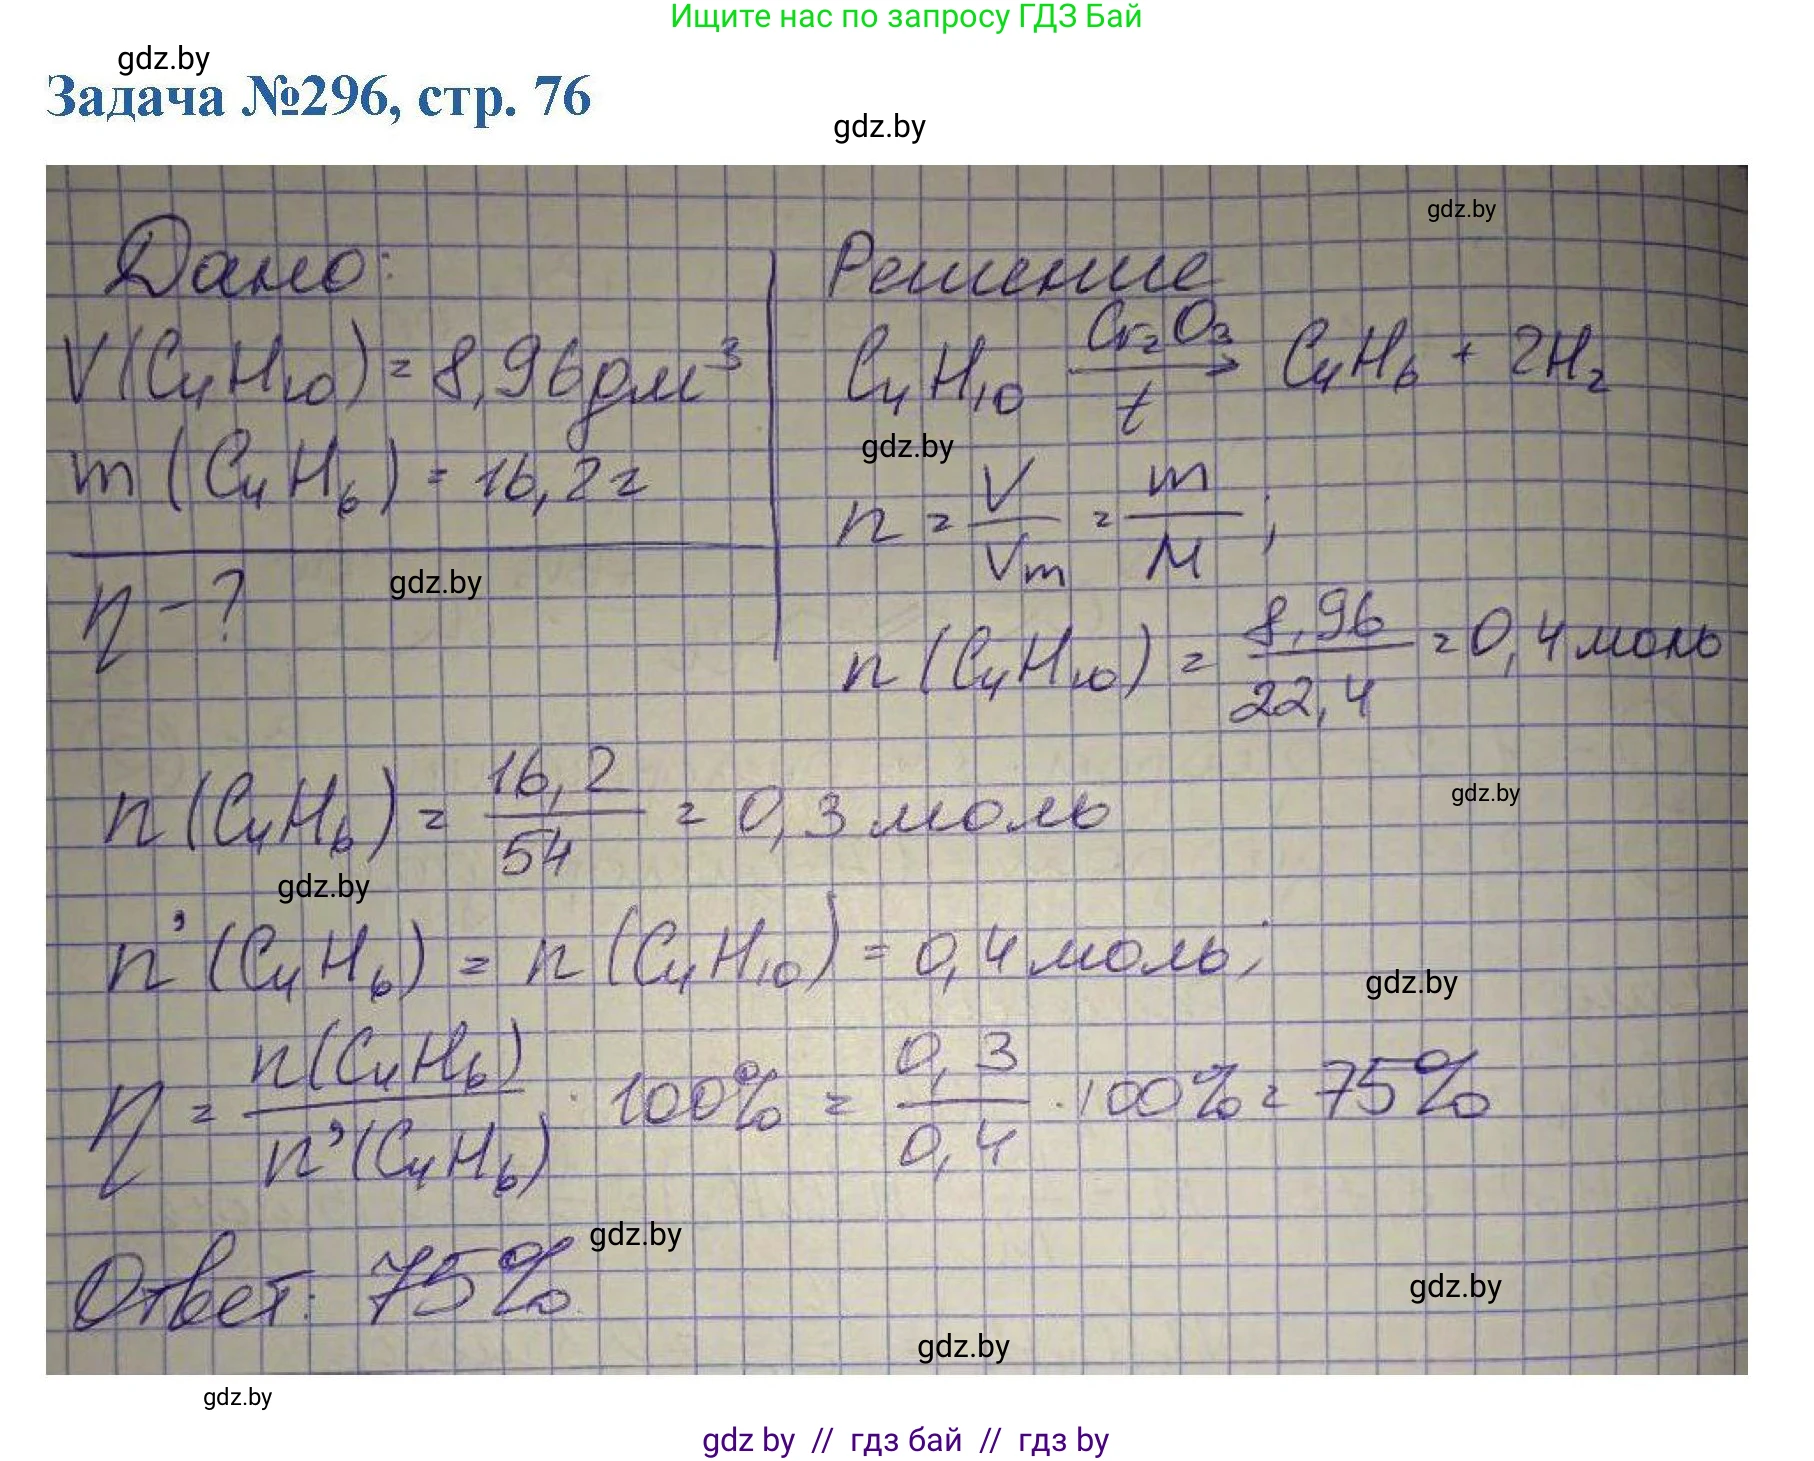 Ищите нас по запросу ГДЗ Бай
gdz.by
Задача №296, стр. 76
gdz.by
gdz.by
Дано:
V(C₄H₁₀) = 8,96 дм³
m (C₄H₆) = 16,2 г
η - ?
gdz.by
Решение
C₄H₁₀ →(Cr₂O₃, t) C₄H₆ + 2H₂
gdz.by
n = V/Vm = m/M ;
n (C₄H₁₀) = 8,96/22,4 = 0,4 моль
n (C₄H₆) = 16,2/54 = 0,3 моль
gdz.by
gdz.by
n' (C₄H₆) = n (C₄H₁₀) = 0,4 моль;
gdz.by
η = n(C₄H₆)/n'(C₄H₆) · 100% = 0,3/0,4 · 100% = 75%
gdz.by
Ответ: 75%
gdz.by
gdz.by
gdz.by
gdz by // гдз бай // гдз by